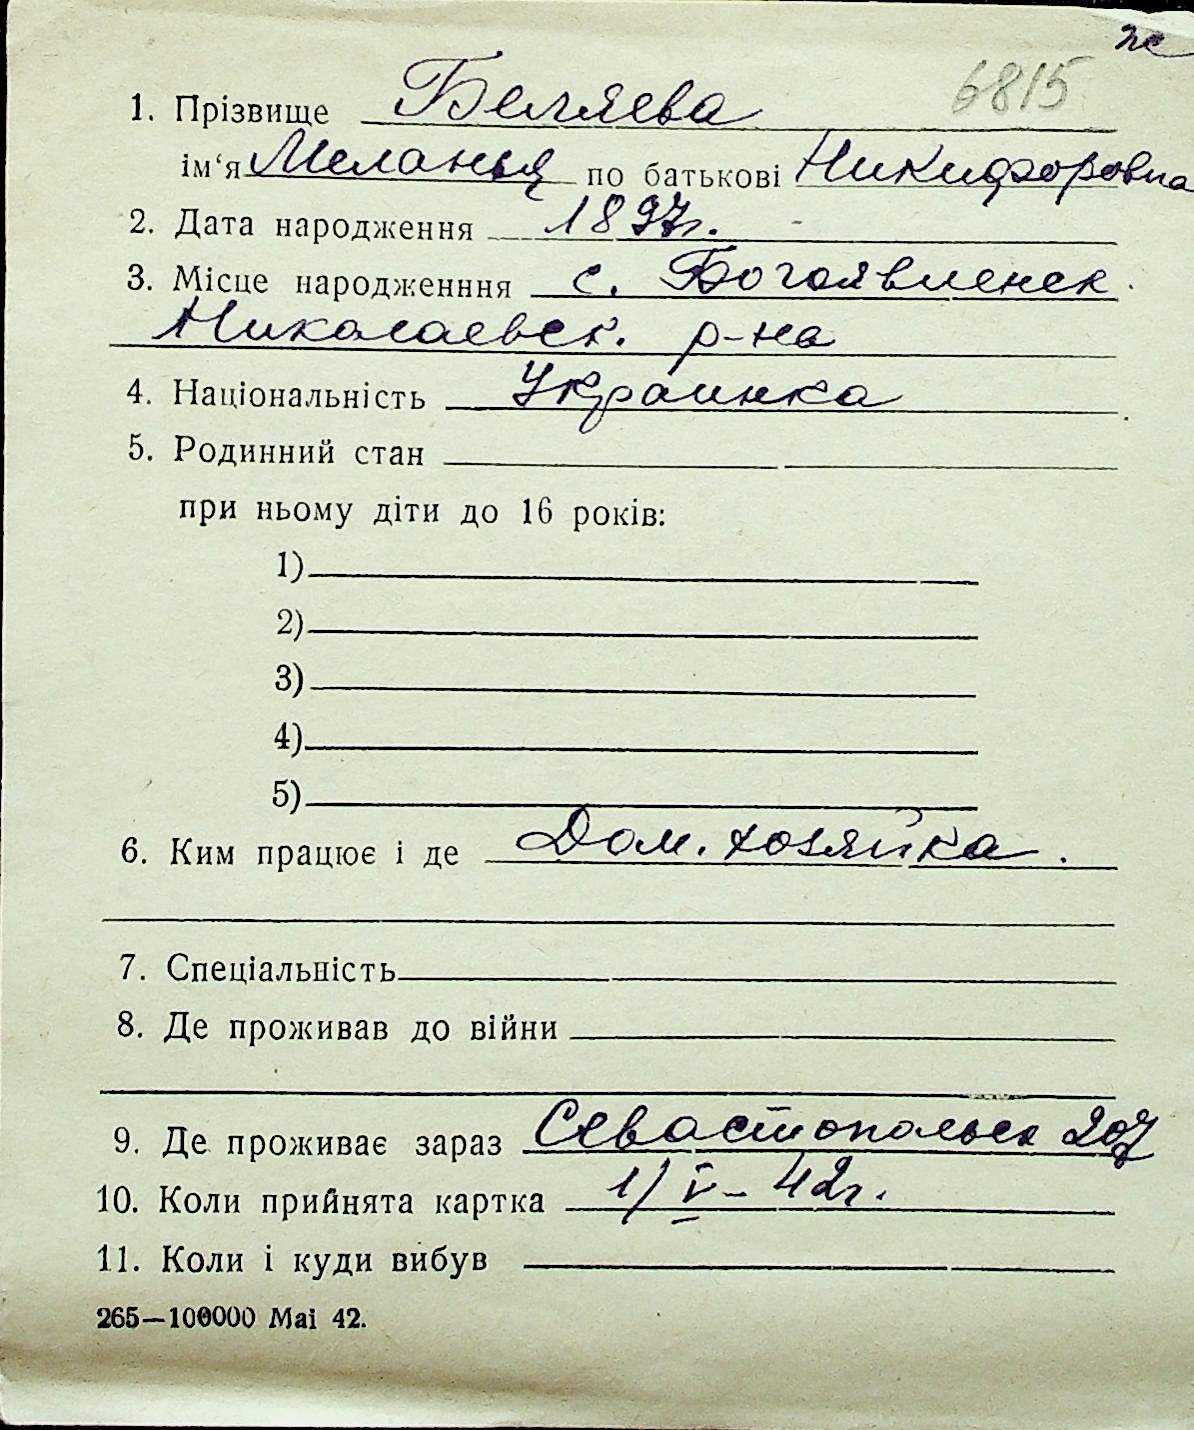 же
6815
1. Прізвище Беляева
ім‘я Меланья по батькові Никифоровна
2. Дата народження 1897г.
3. Місце народженння с. Богоявленск
Николаевск. р-на
4. Національність Украинка
5. Родинний стан
при ньому діти до 16 років:
1)
2)
3)
4)
5)
6. Ким працює і де Дом. хозяйка.
7. Спеціальність
8. Де проживав до війни
9. Де проживає зараз Севастопольск 207
10. Коли прийнята картка 1/V-42г.
11. Коли і куди вибув
265—100000 Маі 42.